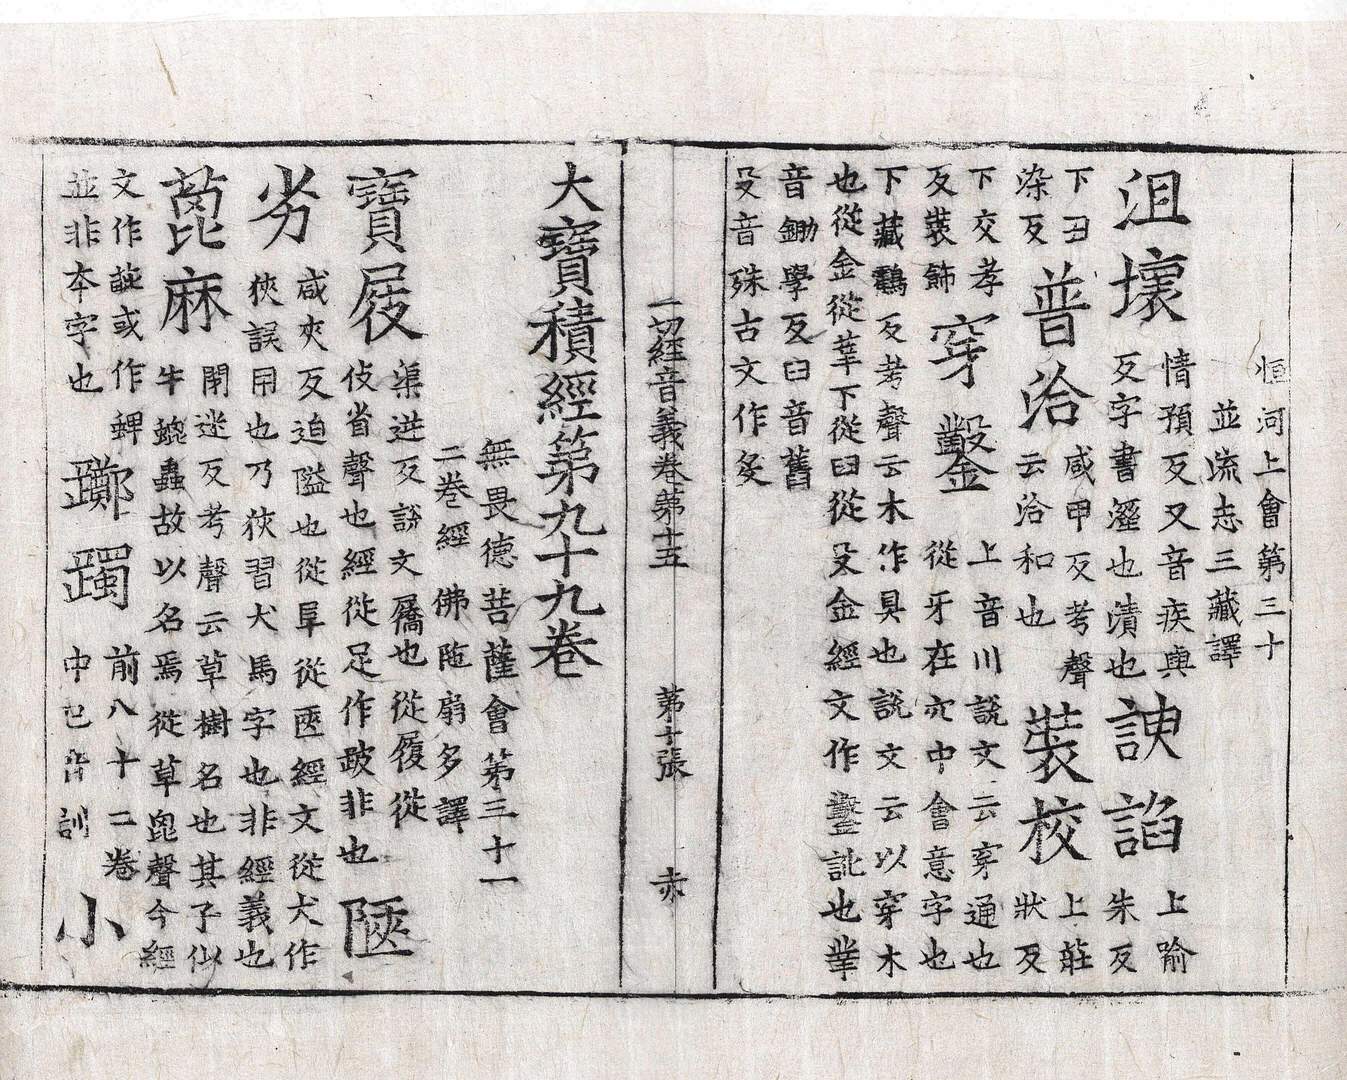 恒河上會第三十
並流志三藏譯
沮壞
情預反又音疾與
反字書溼也漬也
諛諂
上喻
朱反
下丑
染反
普洽
咸甲反考聲
云洽和也
裝校
上莊
狀反
下交孝
反裝飾
穿鑿
上音川說文云穿通也
從牙在穴中會意字也
下藏鸖反考聲云木作具也說文云以穿木
也從金從丵下從臼從殳金經文作鑿訛也丵
音鋤學反臼音舊
殳音殊古文作
一切經音義卷第十五 第十張 赤
大寶積經第九十九卷
無畏德菩薩會第三十一
二卷經 佛陁扇多譯
寶屐
渠逆反說文屩也從履從
伎省聲也經從足作跂非也
陿
劣
咸夾反迫隘也從阜從匧經文從犬作
狹誤用也乃狹習犬馬字也非經義也
萞麻
閉迷反考聲云草樹名也其子似
牛螕蟲故以名焉從草聲今經
文作或作蜱
並非本字也
躑躅
前八十二卷
中已音訓
小